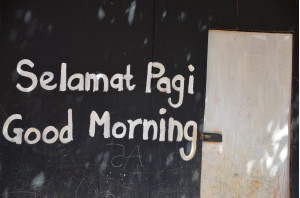 Selamat Pagi
Good Morning